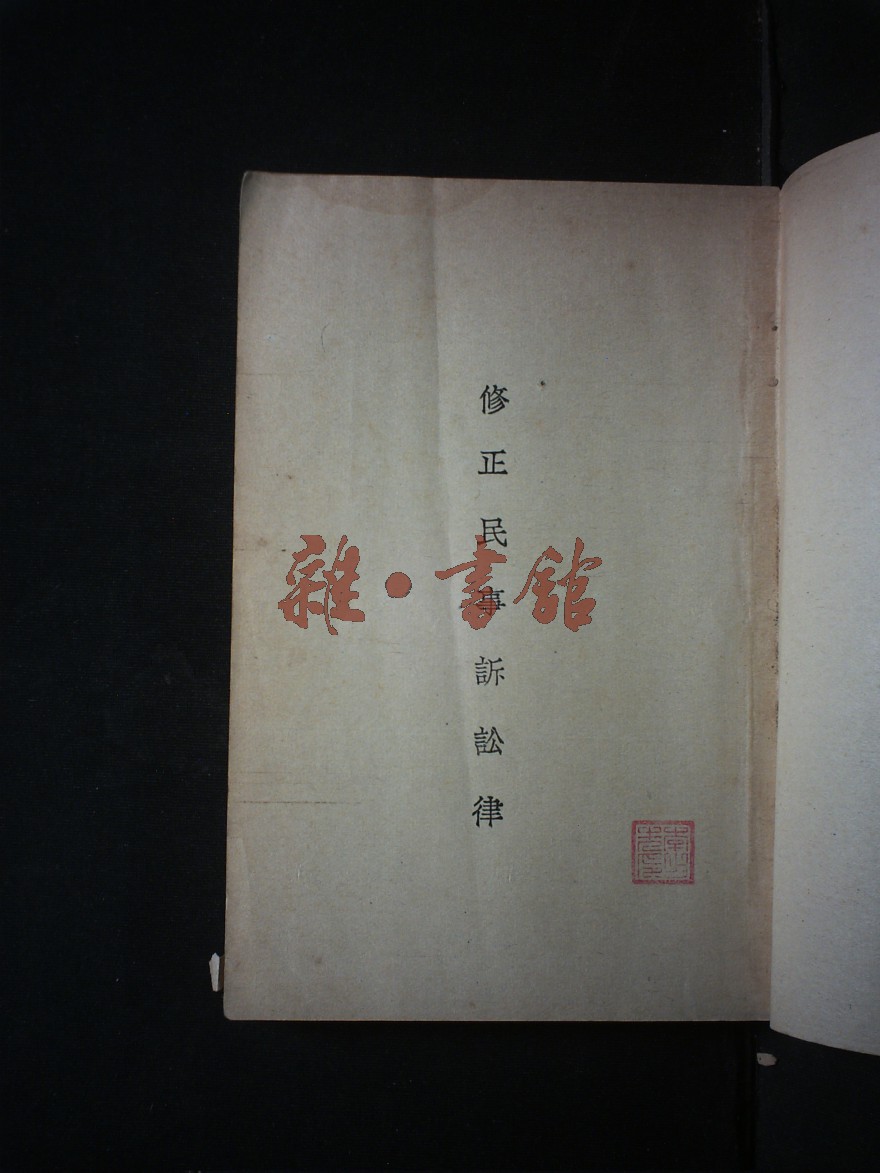 修正民事訴訟律
雜·書館